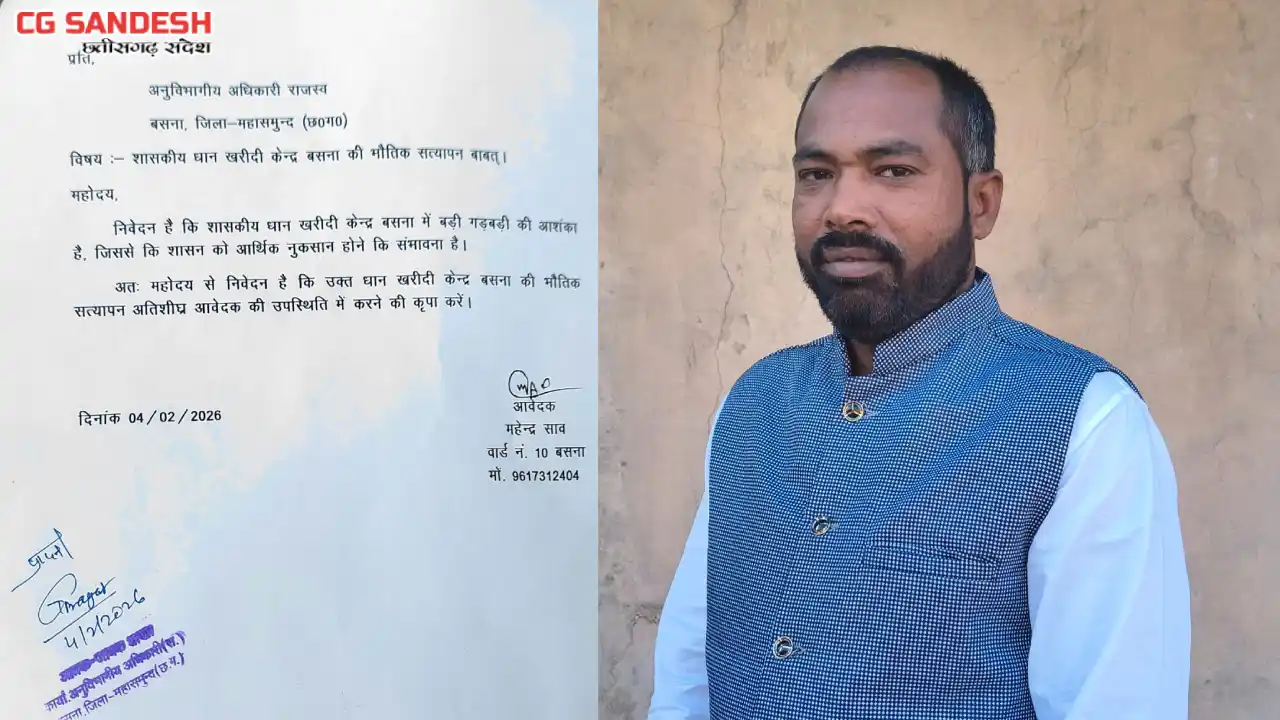 CG SANDESH
छत्तीसगढ़ संदेश
प्रति,
अनुविभागीय अधिकारी राजस्व
बसना, जिला–महासमुन्द (छ0ग0)
विषय :– शासकीय धान खरीदी केन्द्र बसना की भौतिक सत्यापन बाबत्।
महोदय,
निवेदन है कि शासकीय धान खरीदी केन्द्र बसना में बड़ी गड़बड़ी की आशंका
है, जिससे कि शासन को आर्थिक नुकसान होने कि संभावना है।
अतः महोदय से निवेदन है कि उक्त धान खरीदी केन्द्र बसना की भौतिक
सत्यापन अतिशीघ्र आवेदक की उपस्थिति में करने की कृपा करें।
दिनांक 04/02/2026
आवेदक
महेन्द्र साव
वार्ड नं. 10 बसना
मों. 9617312404
4/2/2026
कार्या. अनुविभागीय अधिकारी(रा.)
बसना, जिला–महासमुन्द(छ.ग.)